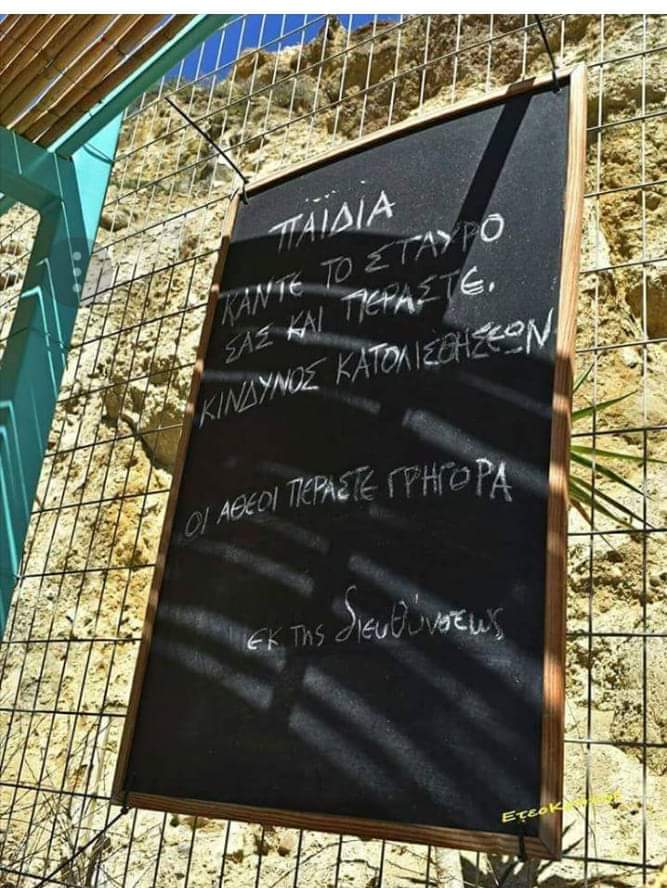 ΠΑΪΔΙΑ
ΚΑΝΤΕ ΤΟ ΣΤΑΥΡΟ
ΣΑΣ ΚΑΙ ΠΕΡΑΣΤΕ.
ΚΙΝΔΥΝΟΣ ΚΑΤΟΛΙΣΘΗΣΕΩΝ
ΟΙ ΑΘΕΟΙ ΠΕΡΑΣΤΕ ΓΡΗΓΟΡΑ
ΕΚ της διευθύνσεως